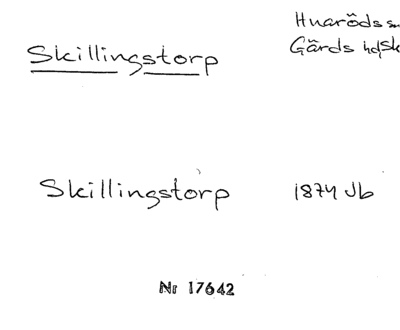 Skillingstorp
Huaröds sn
Gärds hd Sk
Skillingstorp
1874 Jb
Nr 17642